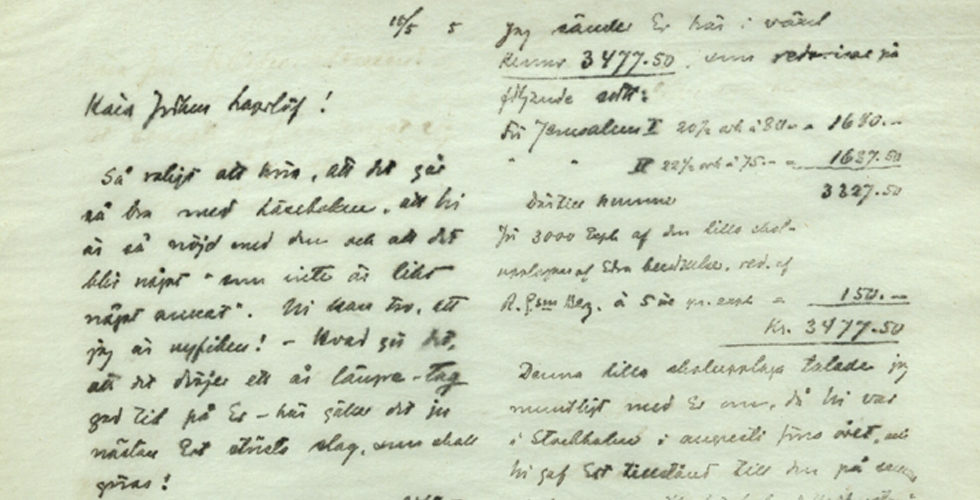 10/5 5
Kära Fröken Lagerlöf!
Så roligt att höra, att det går
så bra med läseboken, att Ni
är så nöjd med den och att det
blir något "som inte är likt
något annat". Ni kan tro, att
jag är nyfiken! – Hvad gör det,
att det dröjer ett år längre – tag
god tid på Er – här gäller det ju
nästan Ert största slag, som skall
göras!
Jag sänder Er här i växel
Kronor 3477.50, som redovisas på
följande sätt:
För Jerusalem I 20½ ark à 80.– = 1640.–
" " II 22½ ark à 75.– = 1687.50
3327.50
Därtill kommer
för 3000 Expl af den lilla skol-
upplagan af Edra berättelse, red. af
à 5 öre pr. expl = 150.–
Kr. 3477.50
Denna lilla skolupplaga talade jag
muntligt med Er om, då Ni var
i Stockholm i augusti förra året, och
Ni gaf Ert tillstånd till den på